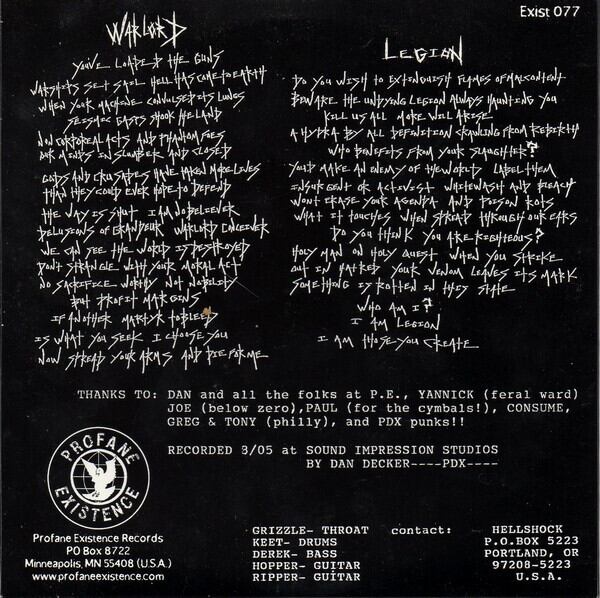 Exist 077
WARLORD
YOU'VE LOADED THE GUNS
WARSHIPS SET SAIL HELL HAS COME TO EARTH
WHEN YOUR MACHINE CONVULSED ITS LUNGS
SEISMIC GASPS SHOOK THE LAND
NON CORPOREAL ACTS AND PHANTOM FOES
OUR MINDS IN SLUMBER AND CLOSED
GODS AND CRUSADES HAVE TAKEN MORE LIVES
THAN THEY COULD EVER HOPE TO DEFEND
THE WAY IS SHUT I AM NO BELIEVER
DELUSIONS OF GRANDEUR WARLORD CONCEIVER
WE CAN SEE THE WORLD IS DESTROYED
DON'T STRANGLE WITH YOUR MORAL ACT
NO SACRIFICE WORTHY NOT NOBILITY
BUT PROFIT MARGINS
IF ANOTHER MARTYR TO BLEED
IS WHAT YOU SEEK I CHOOSE YOU
NOW SPREAD YOUR ARMS AND DIE FOR ME
LEGION
DO YOU WISH TO EXTINGUISH FLAMES OF MALCONTENT
BEWARE THE UNDYING LEGION ALWAYS HAUNTING YOU
KILL US ALL MORE WILL ARISE
A HYDRA BY ALL DEFINITION CRAWLING FROM REBIRTH
WHO BENEFITS FROM YOUR SLAUGHTER?
YOU'D MAKE AN ENEMY OF THE WORLD LABEL THEM
INSURGENT OR ACTIVIST WHITEWASH AND BLEACH
WONT ERASE YOUR AGENDA AND POISON ROTS
WHAT IT TOUCHES WHEN SPREAD THROUGH OUR EARS
DO YOU THINK YOU ARE RIGHTEOUS?
HOLY MAN ON HOLY QUEST WHEN YOU STRIKE
OUT IN HATRED YOUR VENOM LEAVES ITS MARK
SOMETHING IS ROTTEN IN THIS STATE
WHO AM I?
I AM LEGION
I AM THOSE YOU CREATE
THANKS TO: DAN and all the folks at P.E., YANNICK (feral ward)
JOE (below zero),PAUL (for the cymbals!), CONSUME,
GREG & TONY (philly), and PDX punks!!
RECORDED 3/05 at SOUND IMPRESSION STUDIOS
BY DAN DECKER----PDX----
PROFANE
EXISTENCE
Profane Existence Records
PO Box 8722
Minneapolis, MN 55408 (U.S.A.)
www.profaneexistence.com
GRIZZLE- THROAT
KEET- DRUMS
DEREK- BASS
HOPPER- GUITAR
RIPPER- GUITAR
contact:
HELLSHOCK
P.O.BOX 5223
PORTLAND, OR
97208-5223
U.S.A.